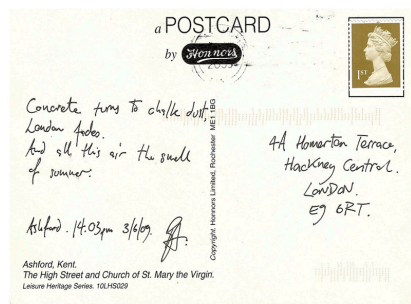 a POSTCARD
by Honnors
1ST
Concrete turns to chalk dust,
London fades.
And all this air the smell
of summer.
Ashford. 14.03pm 3/6/09.
Copyright. Honnors Limited, Rochester ME1 1BG
4A Homerton Terrace,
Hackney Central.
LONDON.
E9 6RT.
Ashford, Kent.
The High Street and Church of St. Mary the Virgin.
Leisure Heritage Series. 10LHS029